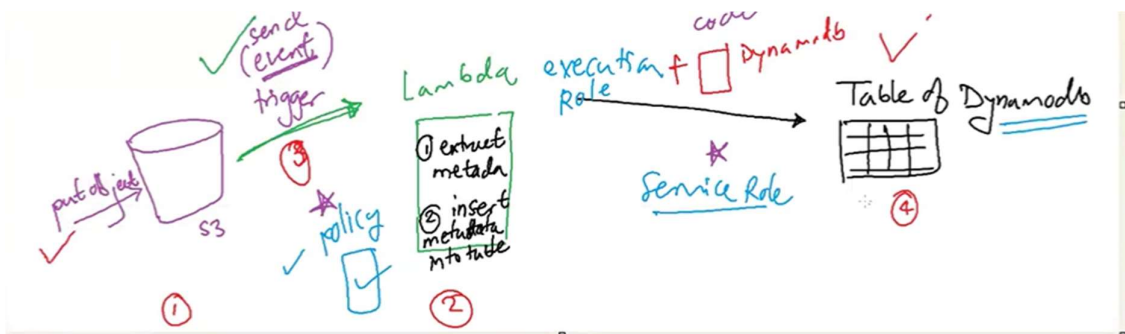 send
(event)
trigger
③
putobject
S3
①
policy
Lambda
① extract
metada
② insert
metadata
into table
②
execution
Role
+
code
Dynamodb
Service Role
Table of Dynamodb
④